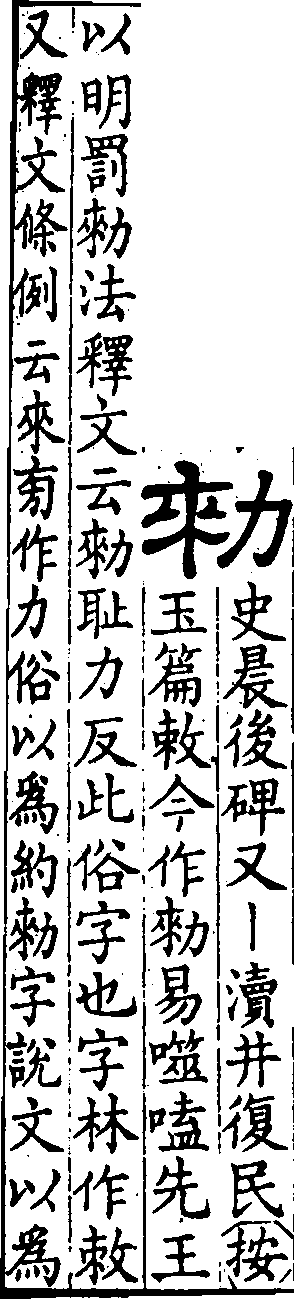 勑
史晨後碑又｜瀆井復民按
玉篇敕今作勑易噬嗑先王
以明罰勑法釋文云勑耻力反此俗字也字林作敕
又釋文條例云來旁作力俗以爲約勑字說文以爲